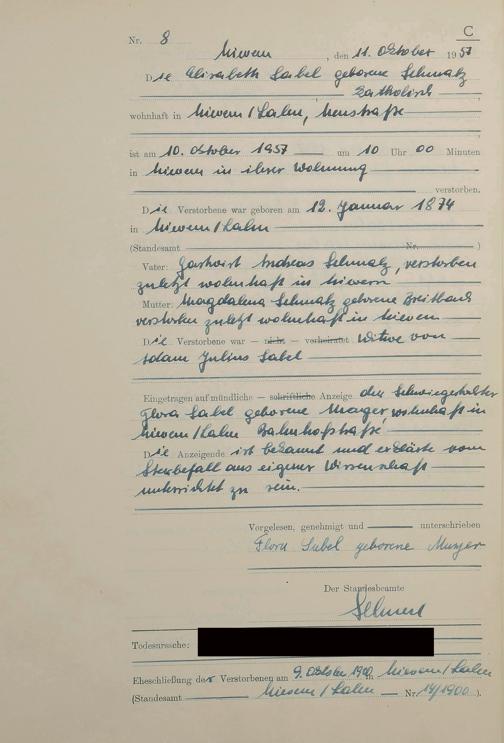 C
Nr. 8
Nievern, den 11. Oktober 1957
Die Elisabeth Sabel geborene Schmalz
Katholisch
wohnhaft in Nievern/Lahn, Neustraße
ist am 10. Oktober 1957 um 10 Uhr 00 Minuten
in Nievern in ihrer Wohnung
verstorben.
Die Verstorbene war geboren am 12. Januar 1874
in Nievern/Lahn
(Standesamt Nr. )
Vater: Gastwirt Andreas Schmalz, verstorben
zuletzt wohnhaft in Nievern
Mutter: Magdalena Schmalz geborene Breitbach
verstorben zuletzt wohnhaft in Nievern
Die Verstorbene war — nicht — verheiratet Witwe von
Adam Julius Sabel
Eingetragen auf mündliche — schriftliche Anzeige der Schwiegertochter
Flora Sabel geborene wohnhaft in
Nievern/Lahn Bahnhofstraße
Die Anzeigende ist bekannt und erklärte vom
Sterbefall aus eigener Wissenschaft
unterrichtet zu sein.
Vorgelesen, genehmigt und unterschrieben
Flora Sabel geborene
Der Standesbeamte
Todesursache:
Eheschließung der Verstorbenen am 9. Oktober 1900 in Nievern/Lahn
(Standesamt Nievern/Lahn Nr. 14/1900).